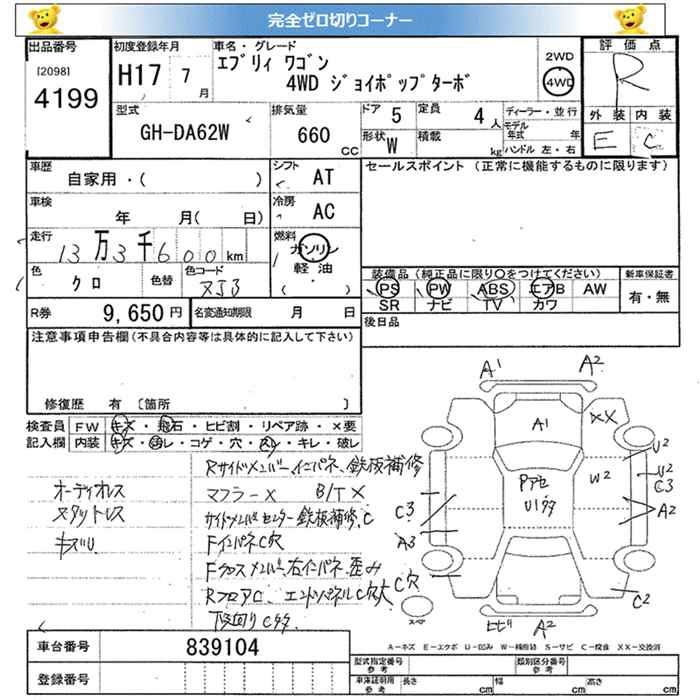 完全ゼロ切りコーナー
出品番号
[2098]
4199
初度登録年月
H17 7 月
車名・グレード
エブリィ ワゴン
4WD ジョイポップターボ
2WD
4WD
評価点
R
外装 内装
E C
型式
GH-DA62W
排気量
660 CC
ドア 5
形状 W
定員 4 人
積載 kg
ディーラー・並行
モデル年式 年
ハンドル 左・右
車歴
自家用・( )
シフト AT
セールスポイント (正常に機能するものに限ります)
車検
年 月( 日)
冷房 AC
走行
13万3千600km
燃料
ガソリン
軽油
( ・ )
色
クロ
色替
色コード
ZJ3
装備品 (純正品に限り○をつけてください)
PS PW ABS エアB AW
SR ナビ TV カワ
新車保証書
有・無
R券 9,650 円
名変通知期限 月 日
後日品
注意事項申告欄 (不具合内容等は具体的に記入して下さい)
修復歴 有 〔箇所 〕
検査員記入欄
FW キズ・飛石・ヒビ割・リペア跡・×要
内装 キズ・汚レ・コゲ・穴・スレ・キレ・破レ
オーディオレス
スタットレス
キズU
Rサイドメンバー、インパネ、鉄板補修
マフラーX B/TX
サイドメンバーセンター鉄板補修、C
FインパネC穴
Fクロスメンバー、右インパネ、歪み
RフロアC、エンドパネルC穴大
下廻りCタタ
A1 A2
A1
XX
U2
U2
C3
W2
A2
Pアセ
U1タタ
C3
A3
C穴
C2
スペア
ヒビ A2
A-キズ E-エクボ U-凹み W-補修跡 S-サビ C-腐食 XX-交換済
車台番号 839104
登録番号
型式指定番号 参考
類別区分番号 参考
車庫証明用 参考
長さ cm
幅 cm
高さ cm